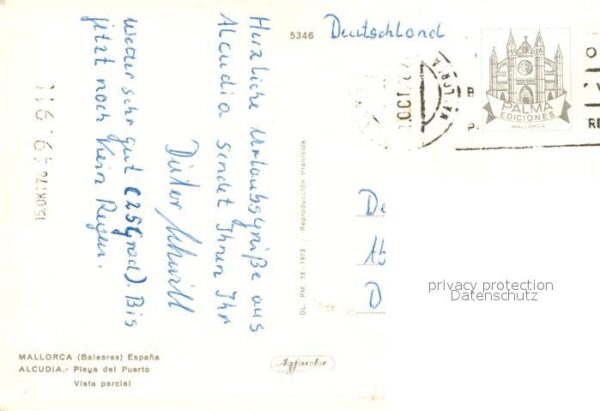 5346
Deutschland
PALMA
EDICIONES
MALLORCA
Herzliche Urlaubsgrüße aus
Alcudia sendet Ihnen Ihr
Dieter
Wetter sehr gut (25Grad). Bis
jetzt noch kein Regen.
DL. PM. 72 - 1972 / Reproducción Prohibida
De
D
privacy protection
Datenschutz
MALLORCA (Baleares) España
ALCUDIA.- Playa del Puerto
Vista parcial